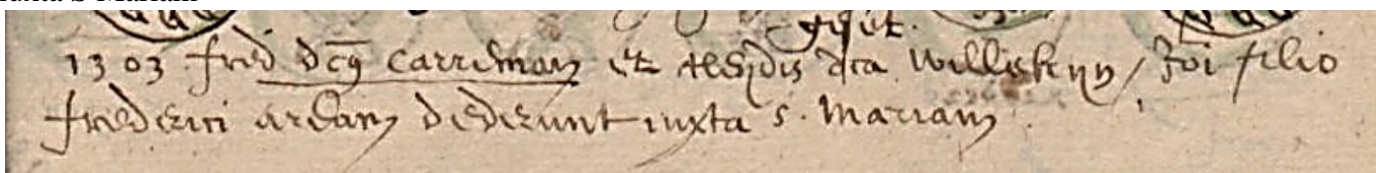 1303 fred dcq Carreman et Alheydis dca Willekyn / Joi filio
frederici aream dederunt iuxta S. Mariam